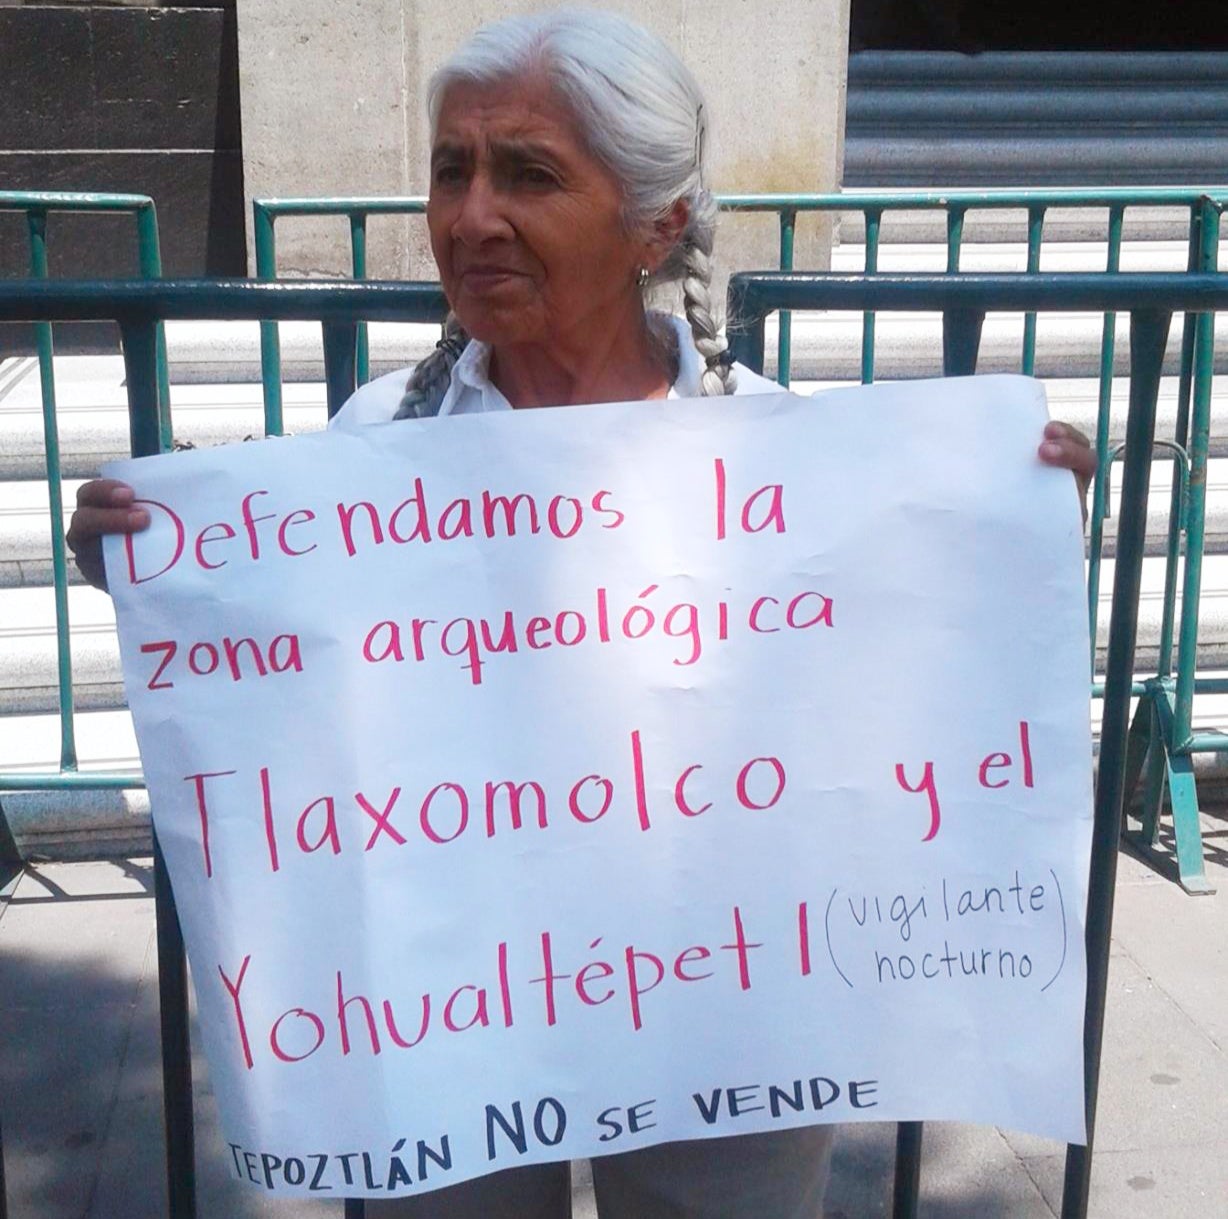 Defendamos la
zona arqueológica
Tlaxomolco y el
Yohualtépetl (vigilante
nocturno)
TEPOZTLÁN NO SE VENDE